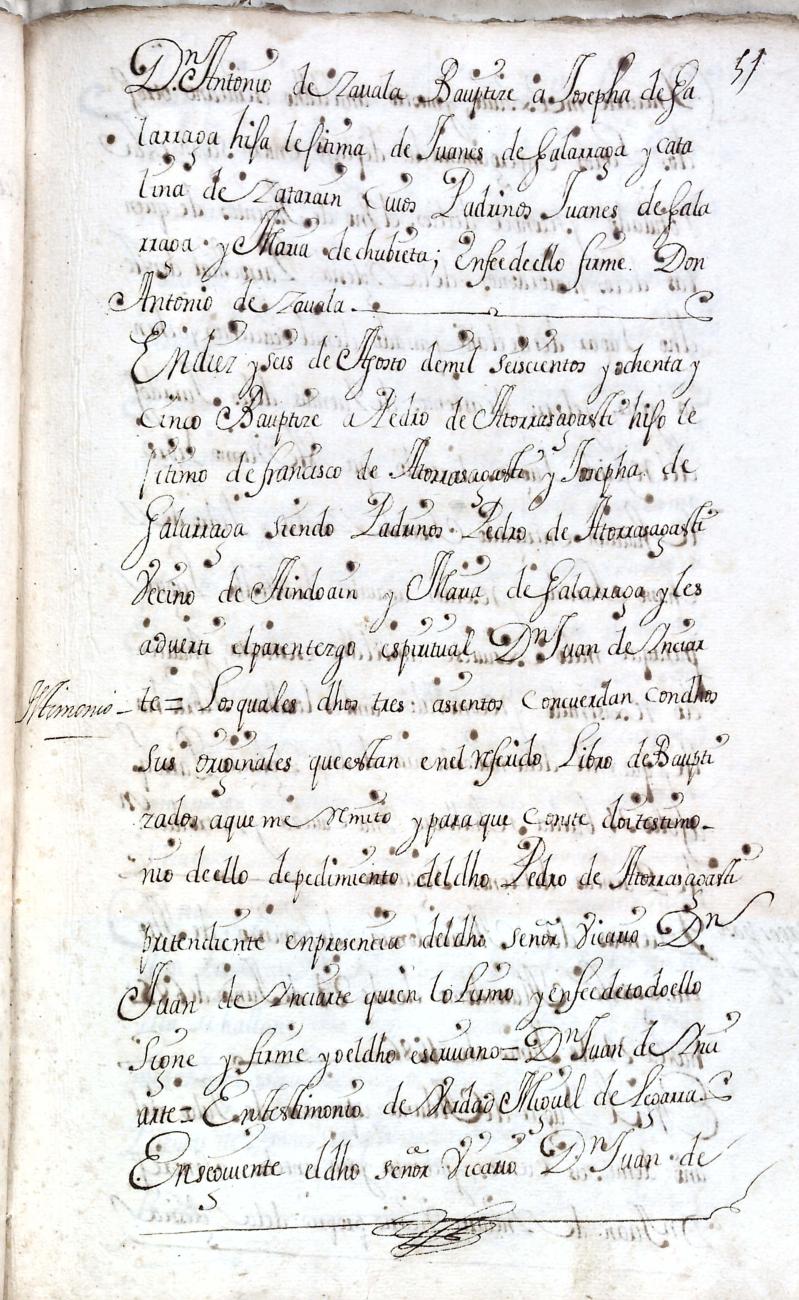 51
Dn Antonio de Zavala Bauptize a Josepha de Ga
larraga hija lejitima de Juanes de Galarraga y Cata
lina de Zatarain Cuios Padrinos Juanes de Gala
rraga y Maria de chubieta; Enfee de ello firme. Don
Antonio de Zavala
En diez y seis de Agosto de mil seiscientos y ochenta y
Cinco Bauptize a Pedro de Atorrasagasti hijo le
jitimo de francisco de Atorrasagasti y Josepha de
Galarraga siendo Padrinos Pedro de Atorrasagasti
Vecino de Aindoain y Maria de Galarraga y les
adverti el parentezgo espiritual Dn Juan de Anciar
te = Los quales dhos tres asientos Concuerdan Con dhos
timonio
sus originales que estan en el referido Libro de Baupti
zados a que me remito y para que Conste doi testimo-
nio de ello de pedimiento del dho Pedro de Atorrasagasti
pretendiente en presencia del dho señor Vicario Dn
Juan de Anciarte quien lo firmo y en fee de todo ello
signe y firme yo el dho escriuano = Dn Juan de Anci
arte = En testimonio de Verdad Miguel de Legarra
En seguiente el dho señor Vicario Dn Juan de